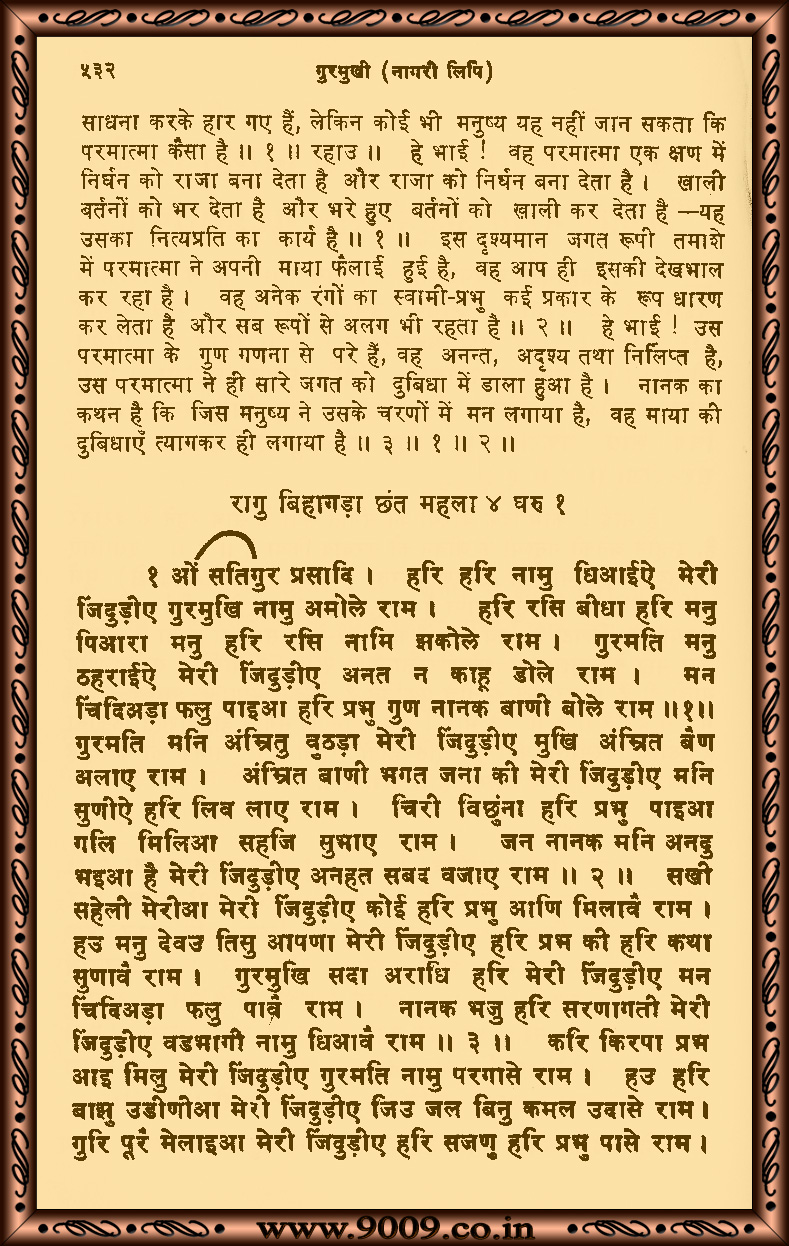 ५३२
गुरमुखी (नागरी लिपि)
साधना करके हार गए हैं, लेकिन कोई भी मनुष्य यह नहीं जान सकता कि
परमात्मा कैसा है ॥ १ ॥ रहाउ ॥ हे भाई ! वह परमात्मा एक क्षण में
निर्धन को राजा बना देता है और राजा को निर्धन बना देता है । खाली
बर्तनों को भर देता है और भरे हुए बर्तनों को खाली कर देता है —यह
उसका नित्यप्रति का कार्य है ॥ १ ॥ इस दृश्यमान जगत रूपी तमाशे
में परमात्मा ने अपनी माया फैलाई हुई है, वह आप ही इसकी देखभाल
कर रहा है । वह अनेक रंगों का स्वामी-प्रभु कई प्रकार के रूप धारण
कर लेता है और सब रूपों से अलग भी रहता है ॥ २ ॥ हे भाई ! उस
परमात्मा के गुण गणना से परे हैं, वह अनन्त, अदृश्य तथा निर्लिप्त है,
उस परमात्मा ने ही सारे जगत को दुबिधा में डाला हुआ है । नानक का
कथन है कि जिस मनुष्य ने उसके चरणों में मन लगाया है, वह माया की
दुबिधाएँ त्यागकर ही लगाया है ॥ ३ ॥ १ ॥ २ ॥
रागु बिहागड़ा छंत महला ४ घरु १
१ ओं सतिगुर प्रसादि । हरि हरि नामु धिआईऐ मेरी
जिंदुड़ीए गुरमुखि नामु अमोले राम । हरि रसि बीधा हरि मनु
पिआरा मनु हरि रसि नामि झकोले राम । गुरमति मनु
ठहराईऐ मेरी जिंदुड़ीए अनत न काहू डोले राम । मन
चिंदिअड़ा फलु पाइआ हरि प्रभु गुण नानक बाणी बोले राम ॥१॥
गुरमति मनि अंम्रितु वुठड़ा मेरी जिंदुड़ीए मुखि अंम्रित बैण
अलाए राम । अंम्रित बाणी भगत जना की मेरी जिंदुड़ीए मनि
सुणीऐ हरि लिव लाए राम । चिरी विछुंना हरि प्रभु पाइआ
गलि मिलिआ सहजि सुभाए राम । जन नानक मनि अनदु
भइआ है मेरी जिंदुड़ीए अनहत सबद वजाए राम ॥ २ ॥ सखी
सहेली मेरीआ मेरी जिंदुड़ीए कोई हरि प्रभु आणि मिलावै राम ।
हउ मनु देवउ तिसु आपणा मेरी जिंदुड़ीए हरि प्रभ की हरि कथा
सुणावै राम । गुरमुखि सदा अराधि हरि मेरी जिंदुड़ीए मन
चिंदिअड़ा फलु पावै राम । नानक भजु हरि सरणागती मेरी
जिंदुड़ीए वडभागी नामु धिआवै राम ॥ ३ ॥ करि किरपा प्रभ
आइ मिलु मेरी जिंदुड़ीए गुरमति नामु परगासे राम । हउ हरि
बाझु उडीणीआ मेरी जिंदुड़ीए जिउ जल बिनु कमल उदासे राम ।
गुरि पूरै मेलाइआ मेरी जिंदुड़ीए हरि सजणु हरि प्रभु पासे राम ।
www.9009.co.in